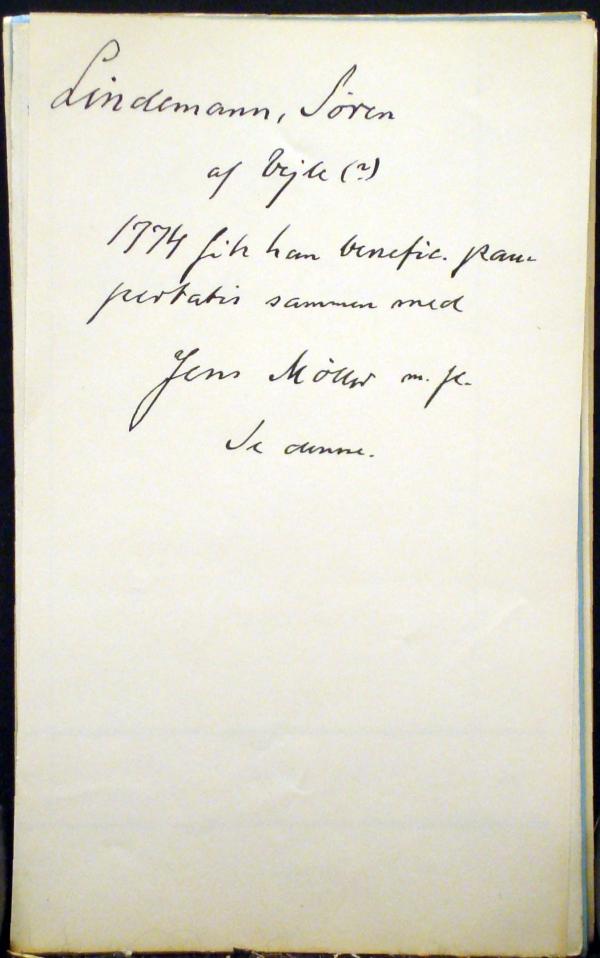 Lindemann, Søren
af Vejle (?)
1774 fik han benefic. pau-
pertatis sammen med
Jens Möller m. fl.
Se denne.